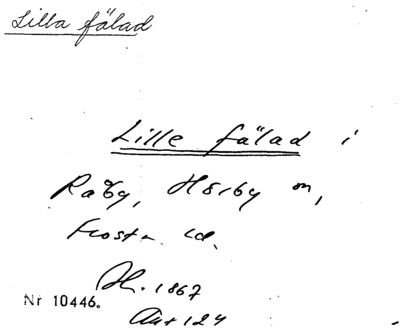 Lilla fälad
Lille fälad i
Råby, Hörby sn,
Frosta hd.
1867
Nr 10446.
124